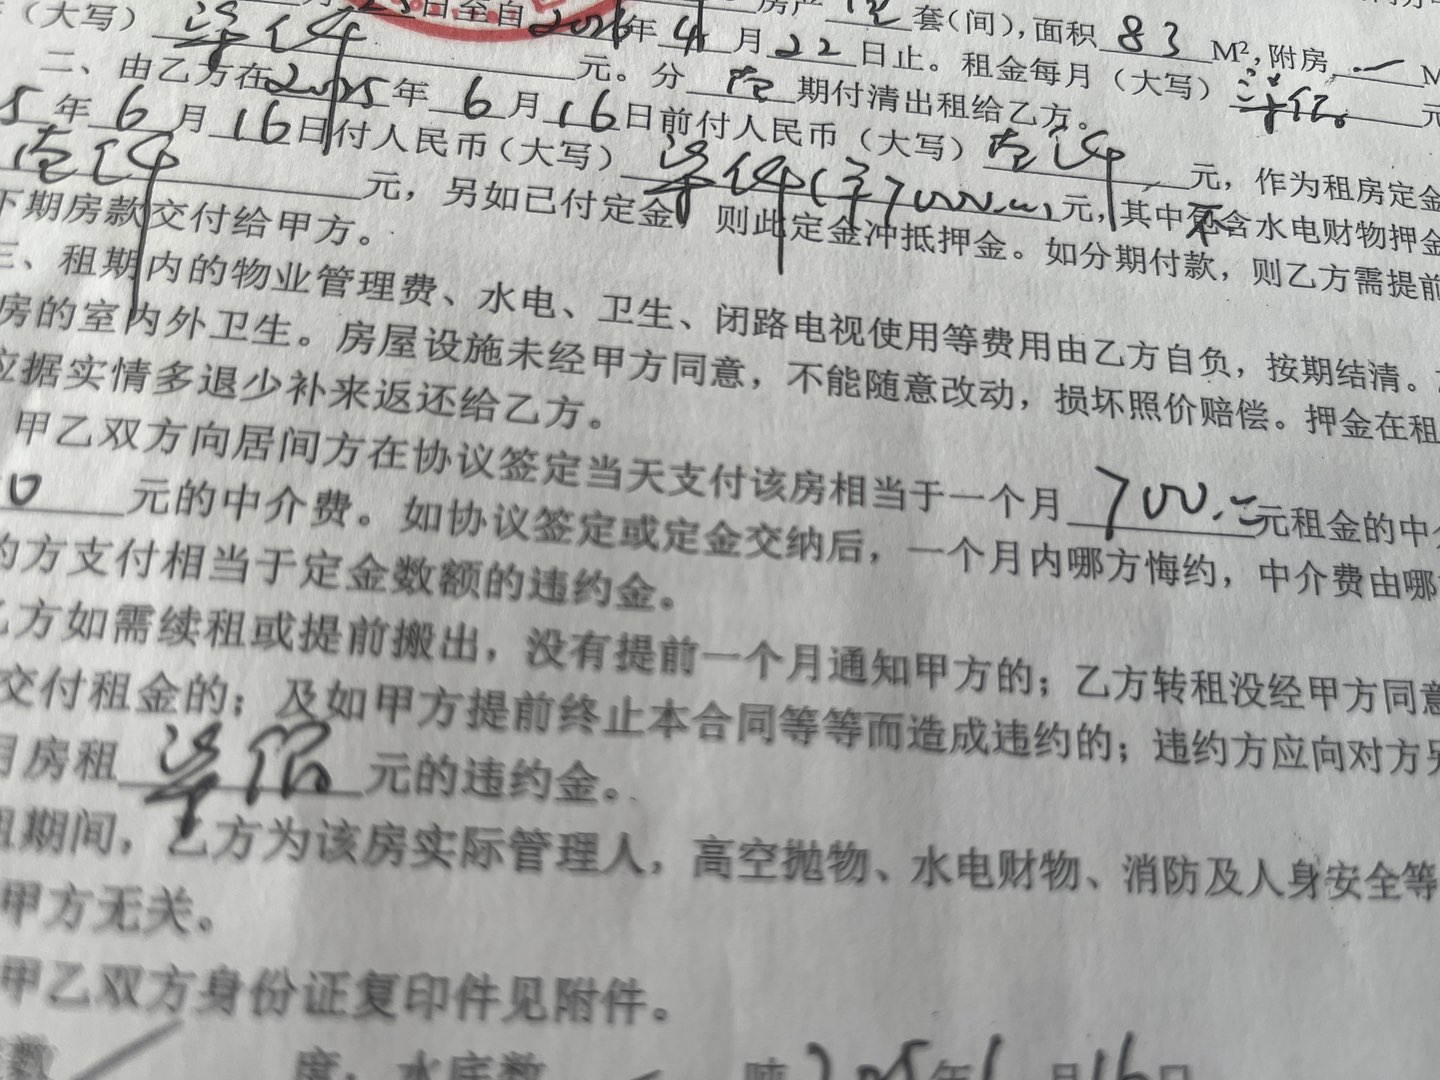 25日至自2026年4月22日止。租金每月（大写）
（大写） 元。分壹期付清出租给乙方。
套(间)，面积83 M²，附房 / M
二、由乙方在2025年6月16日前付人民币（大写） 元，作为租房定金
5年6月16日付人民币（大写） 7000.00元，其中不包含水电财物押金
元，另如已付定金，则此定金冲抵押金。如分期付款，则乙方需提前
下期房款交付给甲方。
三、租期内的物业管理费、水电、卫生、闭路电视使用等费用由乙方自负，按期结清。
房的室内外卫生。房屋设施未经甲方同意，不能随意改动，损坏照价赔偿。押金在租
应据实情多退少补来返还给乙方。
甲乙双方向居间方在协议签定当天支付该房相当于一个月 700 元租金的中介
0 元的中介费。如协议签定或定金交纳后，一个月内哪方悔约，中介费由哪
约方支付相当于定金数额的违约金。
乙方如需续租或提前搬出，没有提前一个月通知甲方的；乙方转租没经甲方同意
交付租金的；及如甲方提前终止本合同等等而造成违约的；违约方应向对方另
月房租 元的违约金。
租期间，乙方为该房实际管理人，高空抛物、水电财物、消防及人身安全等
甲方无关。
甲乙双方身份证复印件见附件。
数 度，水底数 吨 2025年6月16日